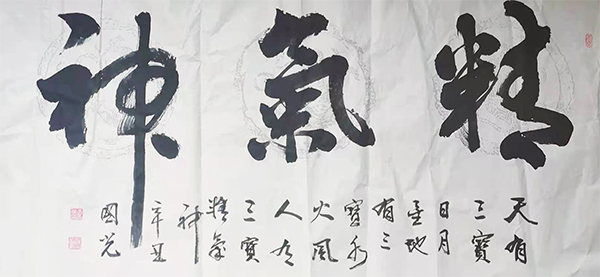 精氣神
天有
三寶
日月
星地
有三
寶水
火風
人有
三寶
精氣
神
辛丑
國光